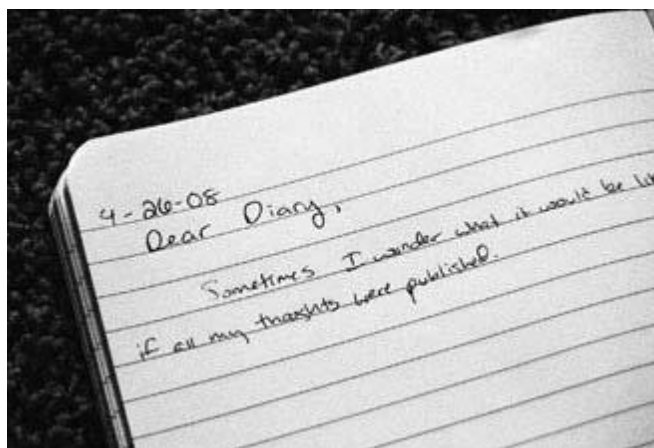 4-26-08
Dear Diary,
Sometimes I wonder what it would be lik
if all my thoughts were published.